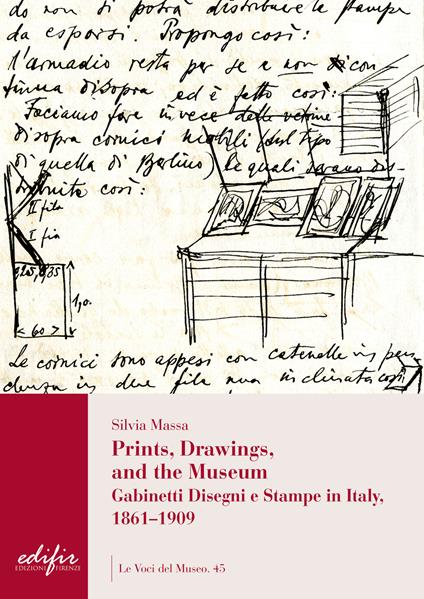 do non si potrà distribuire le stampe
da esporsi. Propongo così:
l'armadio resta per se e non con
tinua disopra ed è fatto così:
Facciamo fare invece delle vetrine
disopra cornici mobili (sul tipo
di quella di Berlino) le quali saranno dis-
tribuite così:
II fila
I fila
1,0.
< 60 >
Le cornici sono appesi con catenelle in pen
denza in due file una inclinata così
Silvia Massa
Prints, Drawings,
and the Museum
Gabinetti Disegni e Stampe in Italy,
1861–1909
edifir
EDIZIONI FIRENZE
Le Voci del Museo. 45